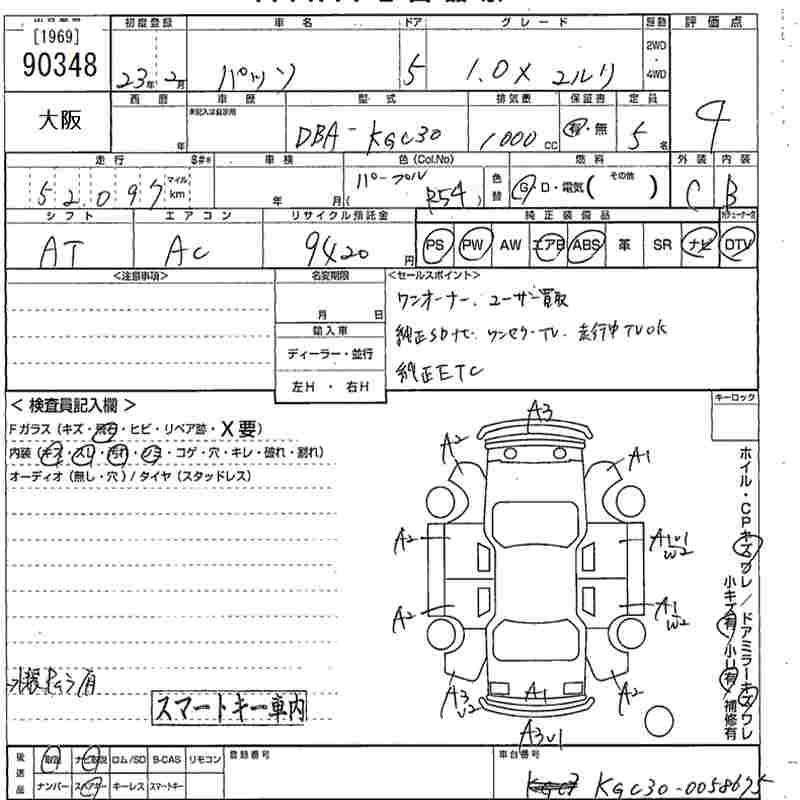 [1969]
90348
大阪
初度登録
23年 2月
車名
パッソ
ドア
5
グレード
1.0X コルリ
駆動
2WD
・
4WD
評価点
4
西暦
年
車歴
未記入は自家用
型式
DBA-KGC30
排気量
1000 CC
保証書
有・無
定員
5 名
走行
52,097
マイル
km
車検
年 月
色 (Col.No)
パープル
( R54 )
色替
燃料
G・D・電気 ( その他 )
外装
C
内装
B
シフト
AT
エアコン
AC
リサイクル預託金
9420 円
純正装備品
PS PW AW エアB ABS 革 SR ナビ DTV
<注意事項>
名変期限
月 日
輸入車
ディーラー・並行
左H・右H
<セールスポイント>
ワンオーナー、ユーザー買取
純正SDナビ・ワンセグTV・走行中TVOK
純正ETC
キーロック
< 検査員記入欄 >
Fガラス (キズ・飛石・ヒビ・リペア跡・X要)
内装 (キズ・スレ・汚れ・シミ・コゲ・穴・キレ・破れ・割れ)
オーディオ (無し・穴) / タイヤ (スタッドレス)
スマートキー車内
A3
A2
A1
A2
A1U1
W2
A2
A1
W2
A3
U2
A1
A2
A3U1
ホイル・CPキズワレ / ドアミラーキズワレ
小キズ有・小U有・補修有
後送品
取説 ナビ取説 ロム/SD B-CAS リモコン
ナンバー スペアキー キーレス スマートキー
登録番号
車台番号
KGC30-0058675